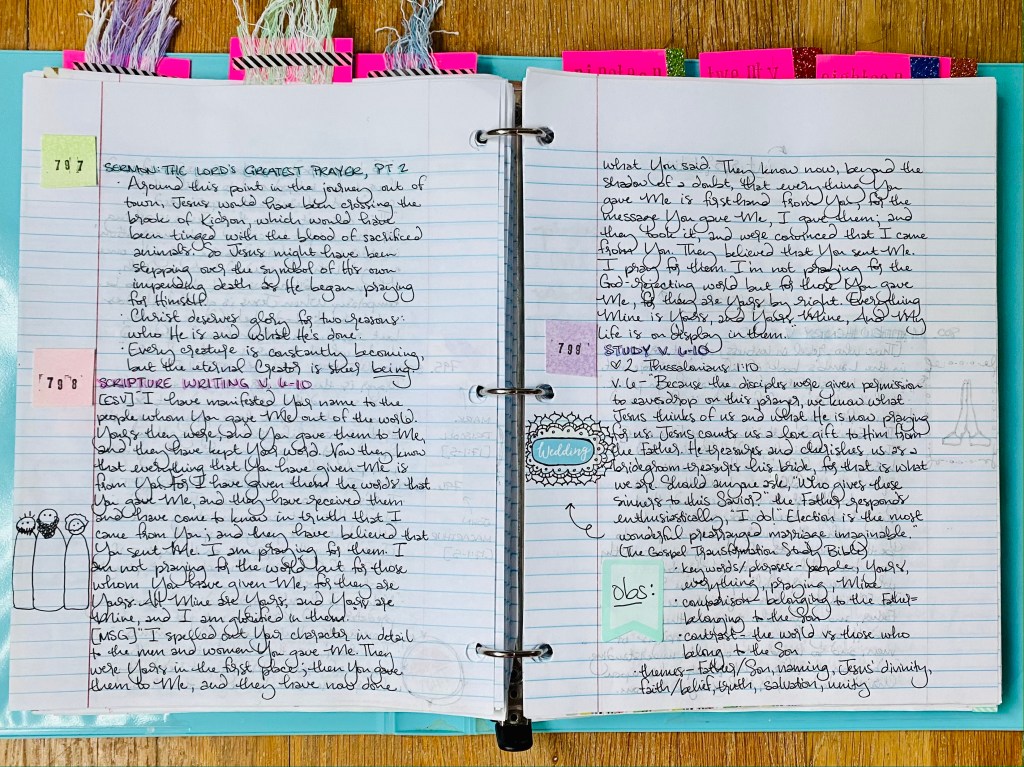 nineteen
twenty
eighteen
797
SERMON: THE LORD'S GREATEST PRAYER, PT 2
· Around this point in the journey out of
town, Jesus would have been crossing the
brook of Kidron, which would have
been tinged with the blood of sacrificed
animals. So Jesus might have been
stepping over the symbol of His own
impending death as He began praying
for Himself.
· Christ deserves glory for two reasons:
who He is and what He's done.
· Every creature is constantly becoming,
but the eternal Creator is sheer being.
798
SCRIPTURE WRITING V. 6-10
[ESV] "I have manifested Your name to the
people whom You gave Me out of the world.
Yours they were, and You gave them to Me,
and they have kept Your word. Now they know
that everything that You have given Me is
from You, for I have given them the words that
You gave Me, and they have received them
and have come to know in truth that I
came from You; and they have believed that
You sent Me. I am praying for them. I
am not praying for the world but for those
whom You have given Me, for they are
Yours. All Mine are Yours, and Yours are
Mine, and I am glorified in them.
[MSG] "I spelled out Your character in detail
to the men and women You gave Me. They
were Yours in the first place; then You gave
them to Me, and they have now done
what You said. They know now, beyond the
shadow of a doubt, that everything You
gave Me is firsthand from You, for the
message You gave Me, I gave them; and
they took it, and were convinced that I came
from You. They believed that You sent Me.
I pray for them. I'm not praying for the
God-rejecting world but for those You gave
Me, for they are Yours by right. Everything
Mine is Yours, and Yours Mine, And My
life is on display in them."
799
STUDY V. 6-10
♡ 2 Thessalonians 1:10
v. 6- "Because the disciples were given permission
to eavesdrop on this prayer, we know what
Jesus thinks of us and what He is now praying
for us. Jesus counts us a love gift to Him from
the Father. He treasures and cherishes us as a
bridegroom treasures his bride, for that is what
we are. Should anyone ask, "Who gives these
sinners to this Savior?" the Father responds
enthusiastically, "I do!" Election is the most
wonderful prearranged marriage imaginable."
(The Gospel Transformation Study Bible)
Wedding
obs:
· keywords/phrases- people, Yours,
everything, praying, Mine
· comparison- belonging to the Father=
belonging to the Son
· contrast- the world vs those who
belong to the Son
· themes- Father/Son, naming, Jesus' divinity,
faith/belief, truth, salvation, unity